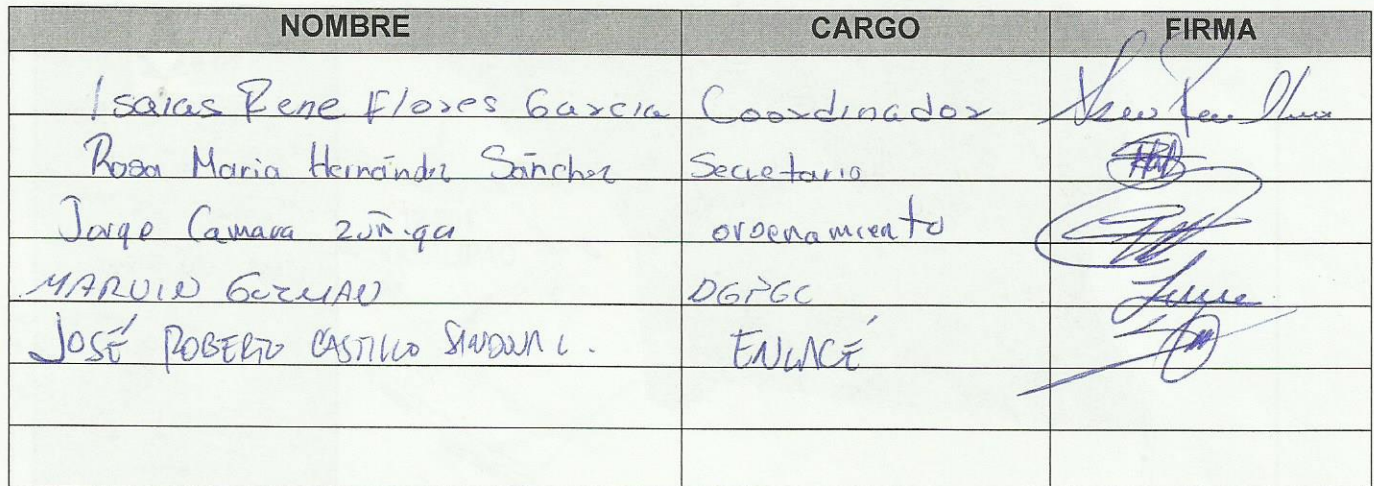 NOMBRE CARGO FIRMA
Isaias Rene Flores Garcia Coordinador
Rosa Maria Hernández Sánchez Secretario
Jorge Camara zúñiga ordenamiento
MARVIN GUZMAN DGPGC
JOSÉ ROBERTO CASTILLO SANDOVAL. ENLACÉ